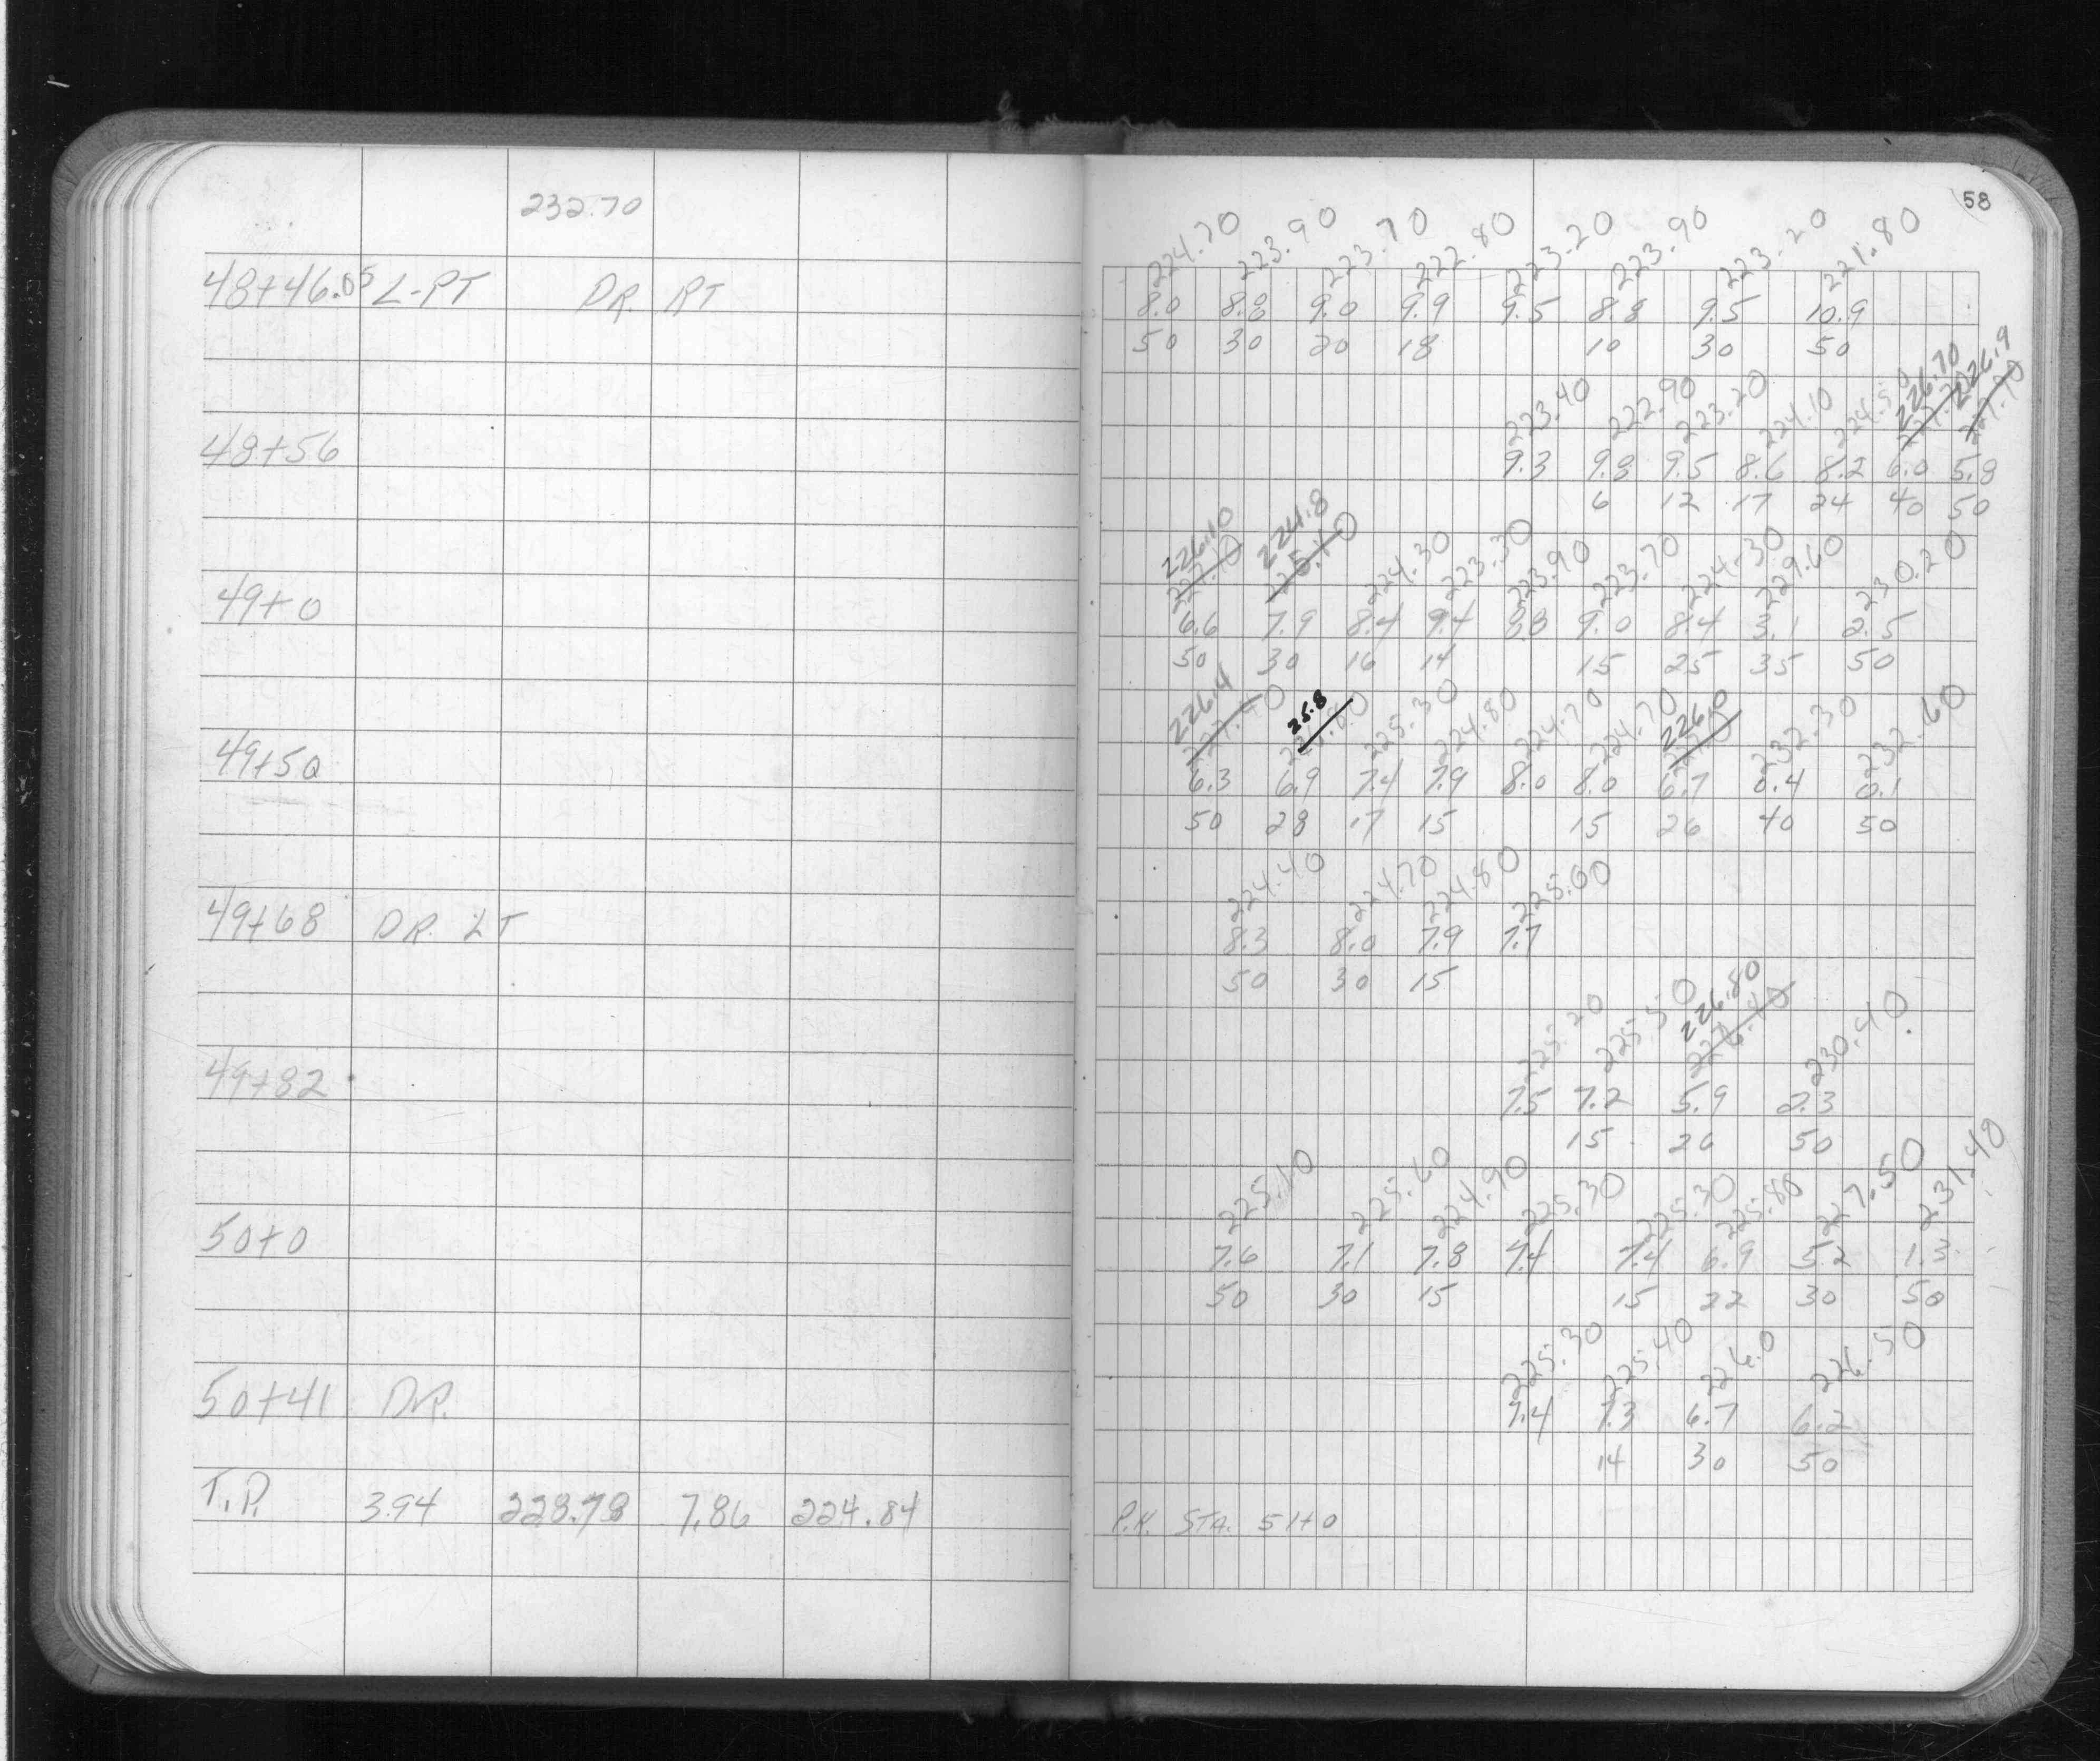 232.70
58
224.70 223.90 223.70 222.80 223.20 223.90 223.20 221.80
48+46.05 L-PT DR. RT 8.0 8.8 9.0 9.9 9.5 8.8 9.5 10.9
50 30 20 18 10 30 50
226.70 226.9
223.40 222.90 223.20 224.10 224.50
48+56 9.3 9.8 9.5 8.6 8.2 6.0 5.8
6 12 17 24 40 50
226.10 224.8
227.10 225.10 224.30 223.30 223.90 223.70 224.30 229.60 230.20
49+0 6.6 7.9 8.4 9.4 8.8 9.0 8.4 3.1 2.5
50 30 16 14 15 25 35 50
226.4 25.8 226.0
227.40 225.30 224.80 224.70 224.70 232.30 232.60
49+50 6.3 6.9 7.4 7.9 8.0 8.0 6.7 0.4 0.1
50 28 17 15 15 26 40 50
224.40 224.70 224.80 225.00
49+68 DR. LT 8.3 8.0 7.9 7.7
50 30 15
226.80
225.20 225.50 230.40
49+82 7.5 7.2 5.9 2.3
15 26 50
225.10 225.60 224.90 225.30 225.30 225.80 227.50 231.40
50+0 7.6 7.1 7.8 7.4 7.4 6.9 5.2 1.3
50 30 15 15 22 30 50
225.30 225.40 226.0 226.50
50+41 DR. 7.4 7.3 6.7 6.2
14 30 50
T.P. 3.94 228.78 7.86 224.84 P.K. STA. 51+0